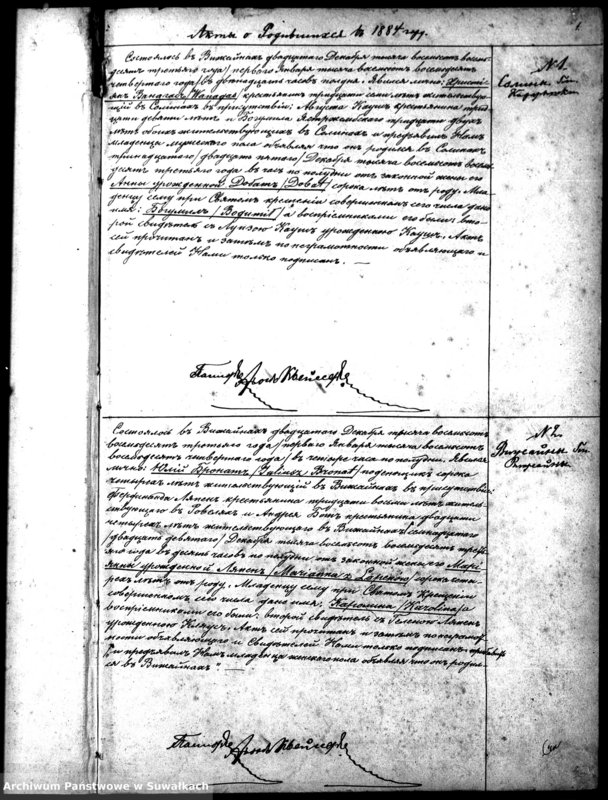 Акты о Родившихся въ 1884 году.
1.
Состоялось въ Вижайнахъ двадцатаго Декабря тысяча восемьсотъ восемь
десятъ третьяго года / перваго Января тысяча восемьсотъ восемьдесятъ
четвертаго года / въ двенадцать часовъ полудня. Явился лично:
крестьянинъ тридцати семи лѣтъ жительствую
щій въ Солинахъ въ присутствіи: Августа Кауцъ крестьянина трид
цати девяти лѣтъ и Богумила Ястржембскаго тридцати двухъ
лѣтъ обоихъ жительствующихъ въ Солинахъ и предъявилъ Намъ
младенца мужескаго пола объявляя что онъ родился въ Солинахъ
тринадцатаго / двадцать пятаго / Декабря тысяча восемьсотъ восемь
десятъ третьяго года въ часъ по полудни отъ законной жены его
Анны урожденной Добатъ / Dobat / сорока лѣтъ отъ роду. Мла
денцу сему при Святомъ крещеніи совершенномъ сего числа дано
имя: Богумилъ / Bogumił / а воспріемниками его были: вто
рой свидѣтель съ Луизою Кауцъ урожденною Кауцъ. Актъ
сей прочитанъ и затѣмъ по неграмотности объявляющаго и
свидѣтелей Нами только подписанъ. —
№ 1.
Солины
Пасторъ
Состоялось въ Вижайнахъ двадцатаго Декабря тысяча восемьсотъ
восемьдесятъ третьяго года / перваго Января тысяча восемьсотъ
восемьдесятъ четвертаго года / въ четыре часа по полудни. Явился
лично: Юлій Бронатъ / Juliusz Bronat / поденщикъ сорока
четырехъ лѣтъ жительствующій въ Вижайнахъ въ присутствіи:
Фердинанда Ляпенъ крестьянина тридцати восьми лѣтъ житель
ствующаго въ и Андрея Ботъ крестьянина двадцати
четырехъ лѣтъ жительствующаго въ Вижайнахъ семнадцатаго
/ двадцать девятаго / Декабря тысяча восемьсотъ восемьдесятъ треть
яго года въ десять часовъ по полудни отъ законной жены его Марі
янны урожденной Ляпенъ / Maryanna z / сорока четы
рехъ лѣтъ отъ роду. Младенцу сему при Святомъ Крещеніи
совершенномъ сего числа дано имя: Каролина / Karolina / а
воспріемниками его были: второй свидѣтель съ Геленою Ляпенъ
урожденною Актъ сей прочитанъ и затѣмъ по неграмот
ности объявляющаго и Свидѣтелей Нами только подписанъ.
и предъявилъ Намъ младенца женскаго пола объявляя что онъ родил
ся въ Вижайнахъ" —
№ 2.
Вижайны
Вижайны
Пасторъ
Archiwum Państwowe w Suwałkach